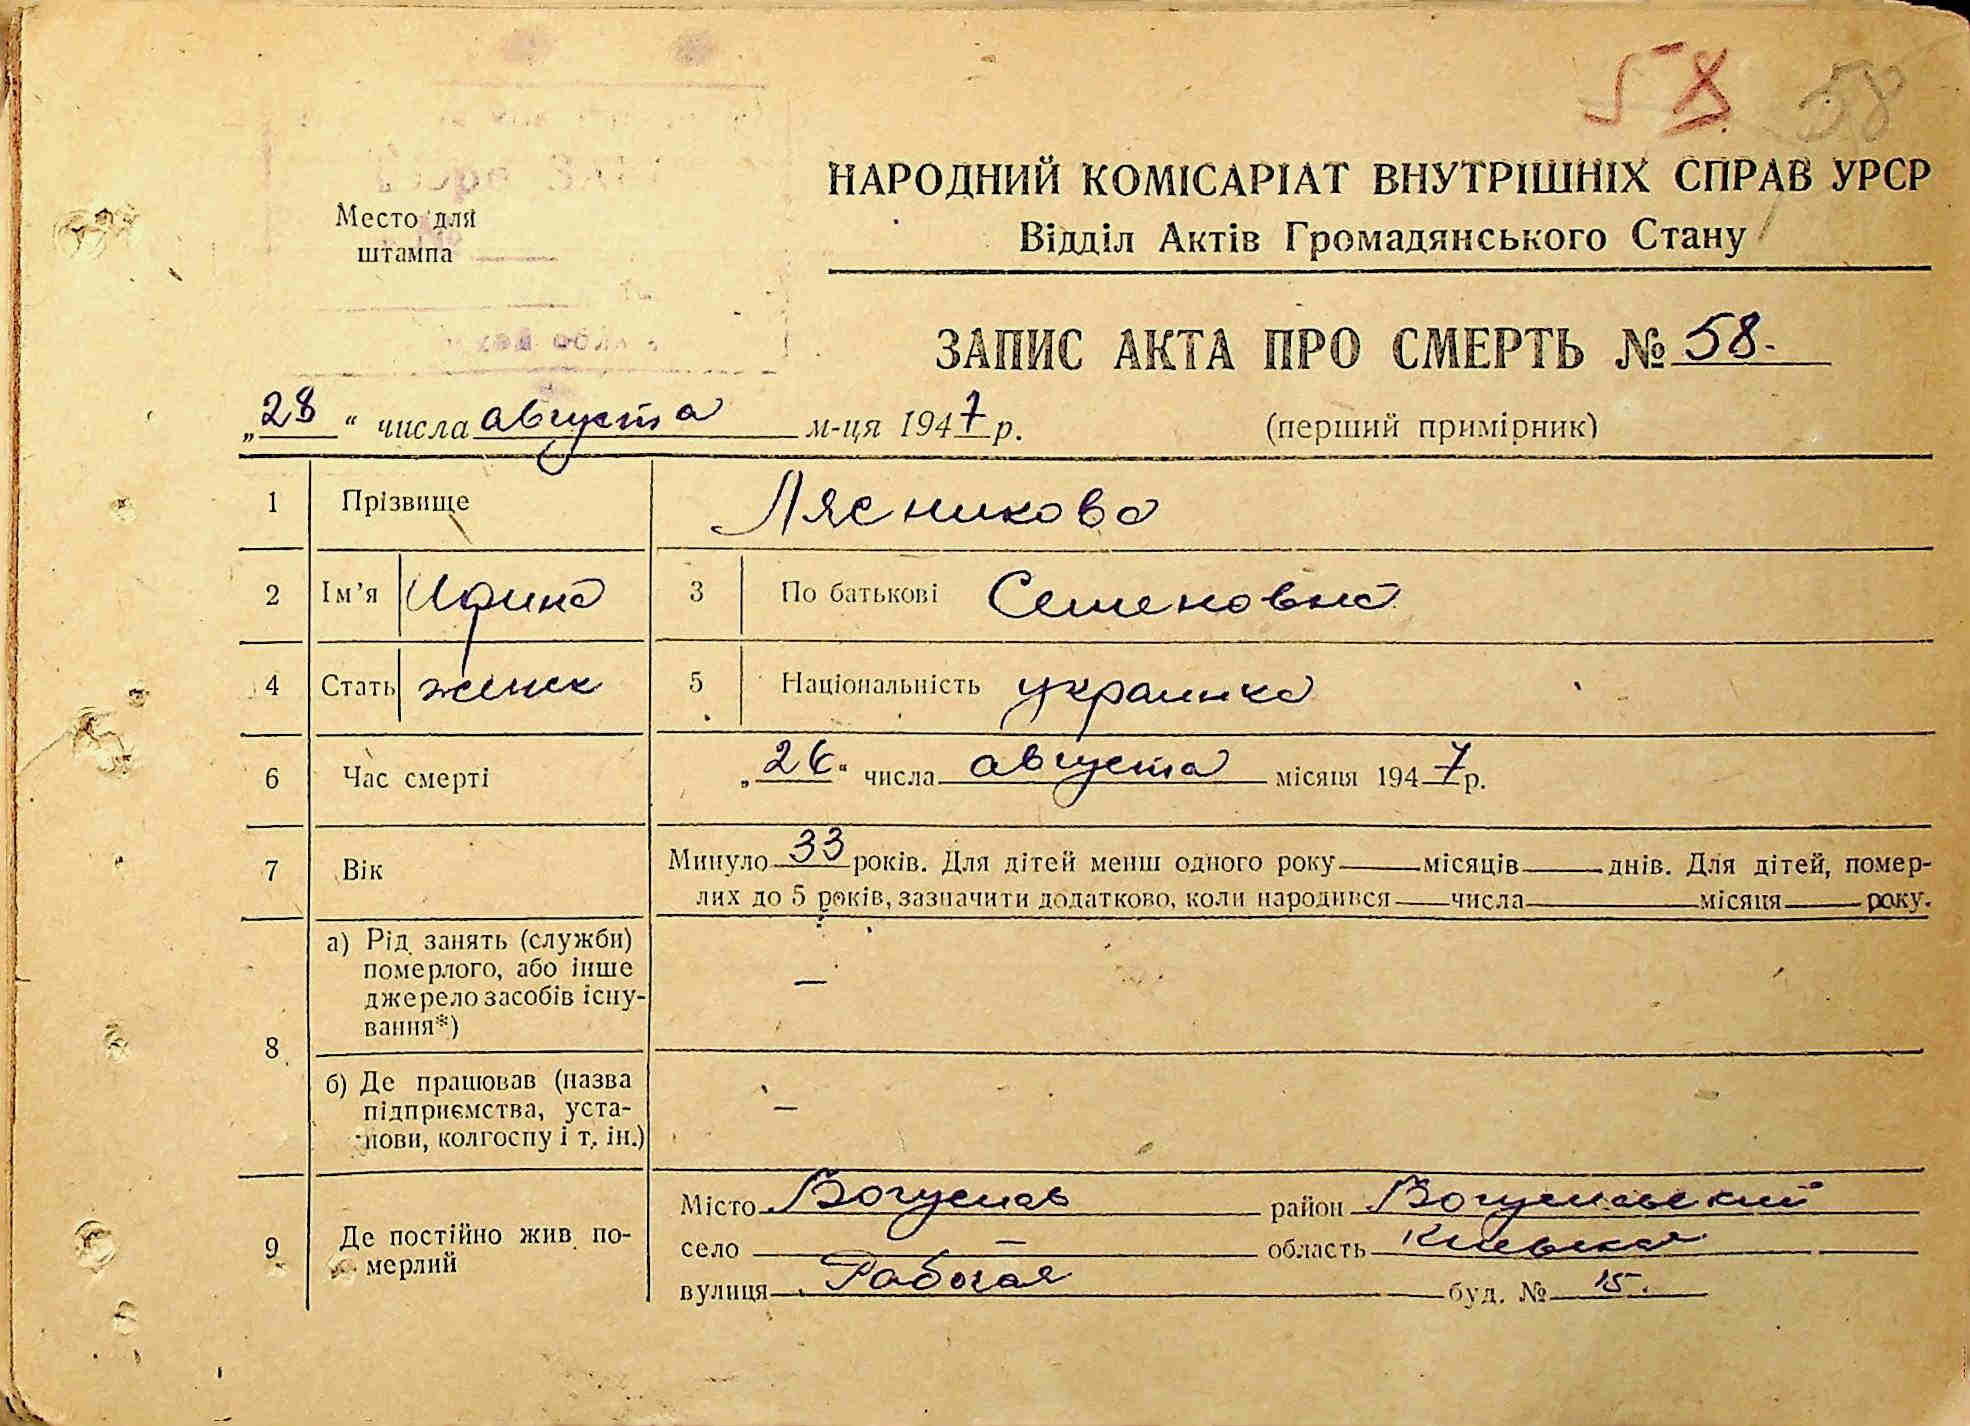 58 58
НАРОДНИЙ КОМІСАРІАТ ВНУТРІШНІХ СПРАВ УРСР
Відділ Актів Громадянського Стану
Место для
штампа
ЗАПИС АКТА ПРО СМЕРТЬ № 58.
„28“ числа августа м-ця 1947 р.
(перший примірник)
1 Прізвище Лясникова
2 Ім’я Ирина 3 По батькові Семеновна
4 Стать женск 5 Національність украинка
6 Час смерті „26“ числа августа місяця 1947 р.
7 Вік Минуло 33 років. Для дітей менш одного року — місяців — днів. Для дітей, помер-
лих до 5 років, зазначити додатково, коли народився — числа — місяця — року.
8 а) Рід занять (служби)
померлого, або інше
джерело засобів існу-
вання*) —
б) Де працював (назва
підприємства, уста-
нови, колгоспу і т. ін.) —
9 Де постійно жив по-
мерлий
Місто Богуслав район Богуславский
село — область Киевская
вулиця Рабочая буд. № 15.